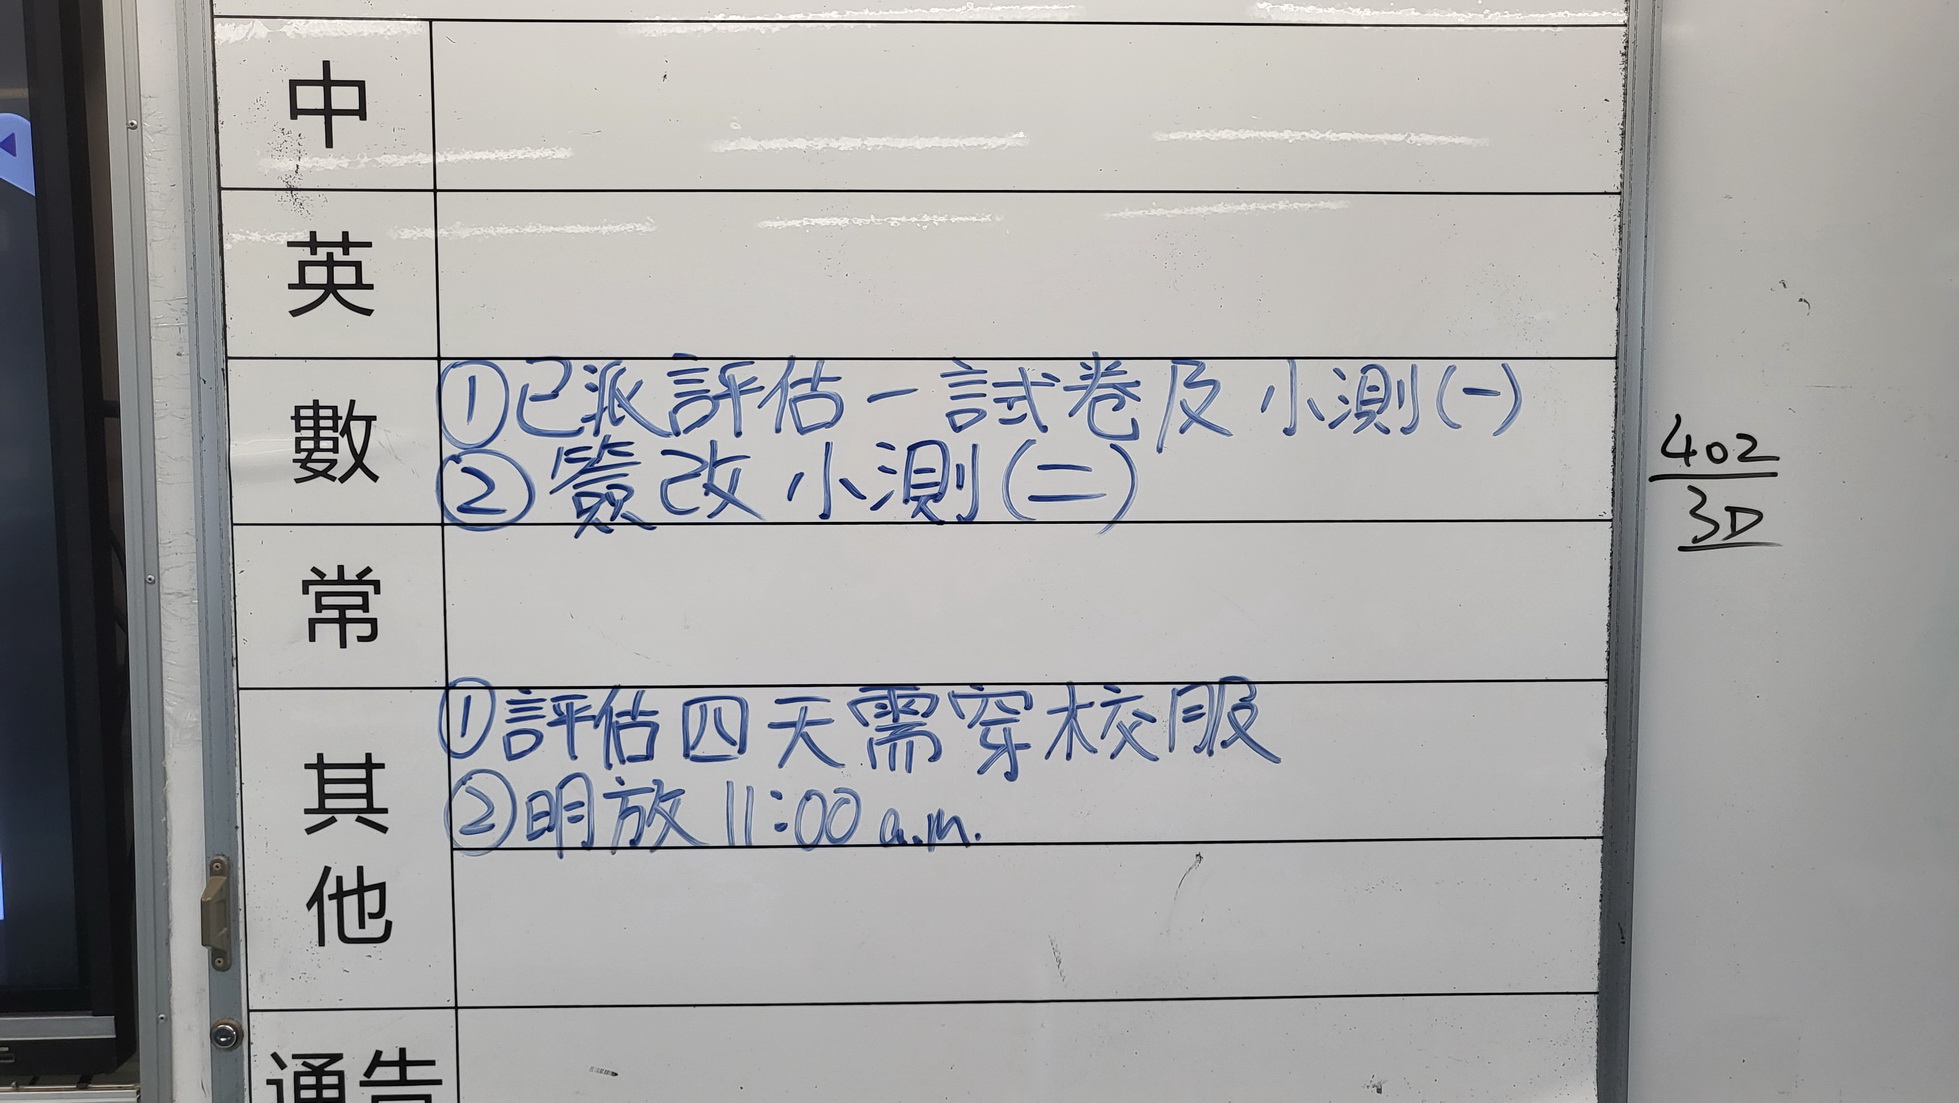 中
英
數
①已派評估一試卷及小測(一)
②簽改小測(二)
常
其他
①評估四天需穿校服
②明放11:00 a.m.
通告
402
3D